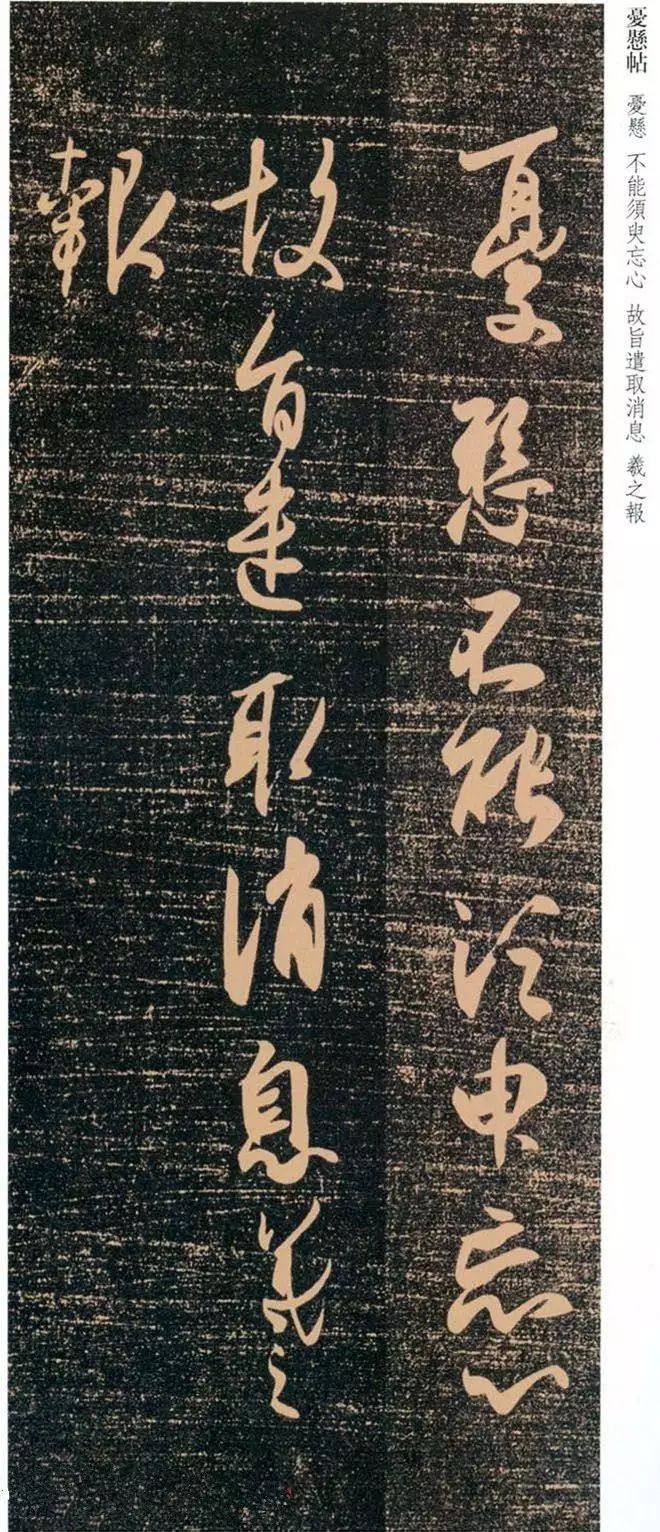 憂懸帖　憂懸　不能須臾忘心　故旨遣取消息　羲之報
憂懸不能須臾忘心
故旨遣取消息羲之
報